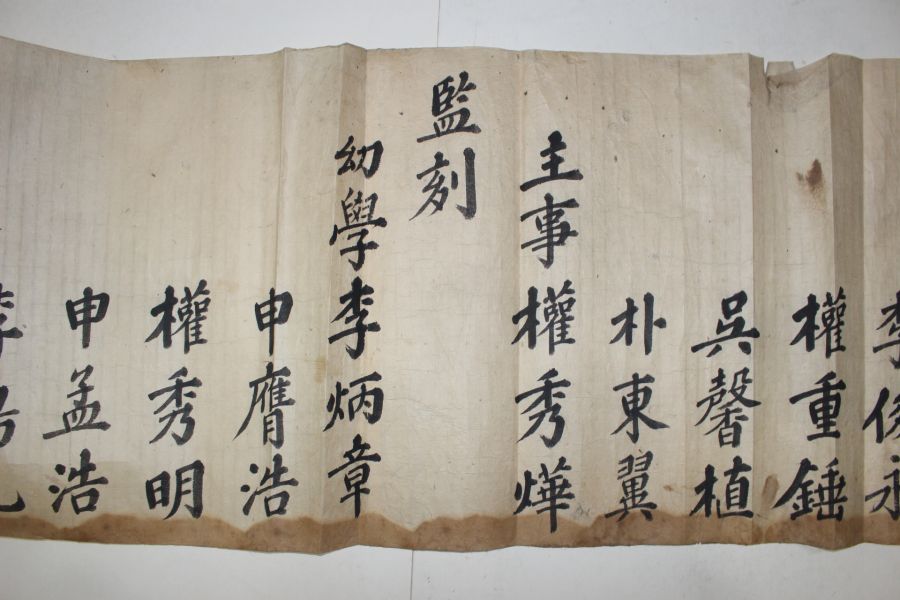 李俊永
權重錘
吳馨植
朴東翼
主事權秀燁
監刻
幼學李炳章
申膺浩
權秀明
申孟浩
李